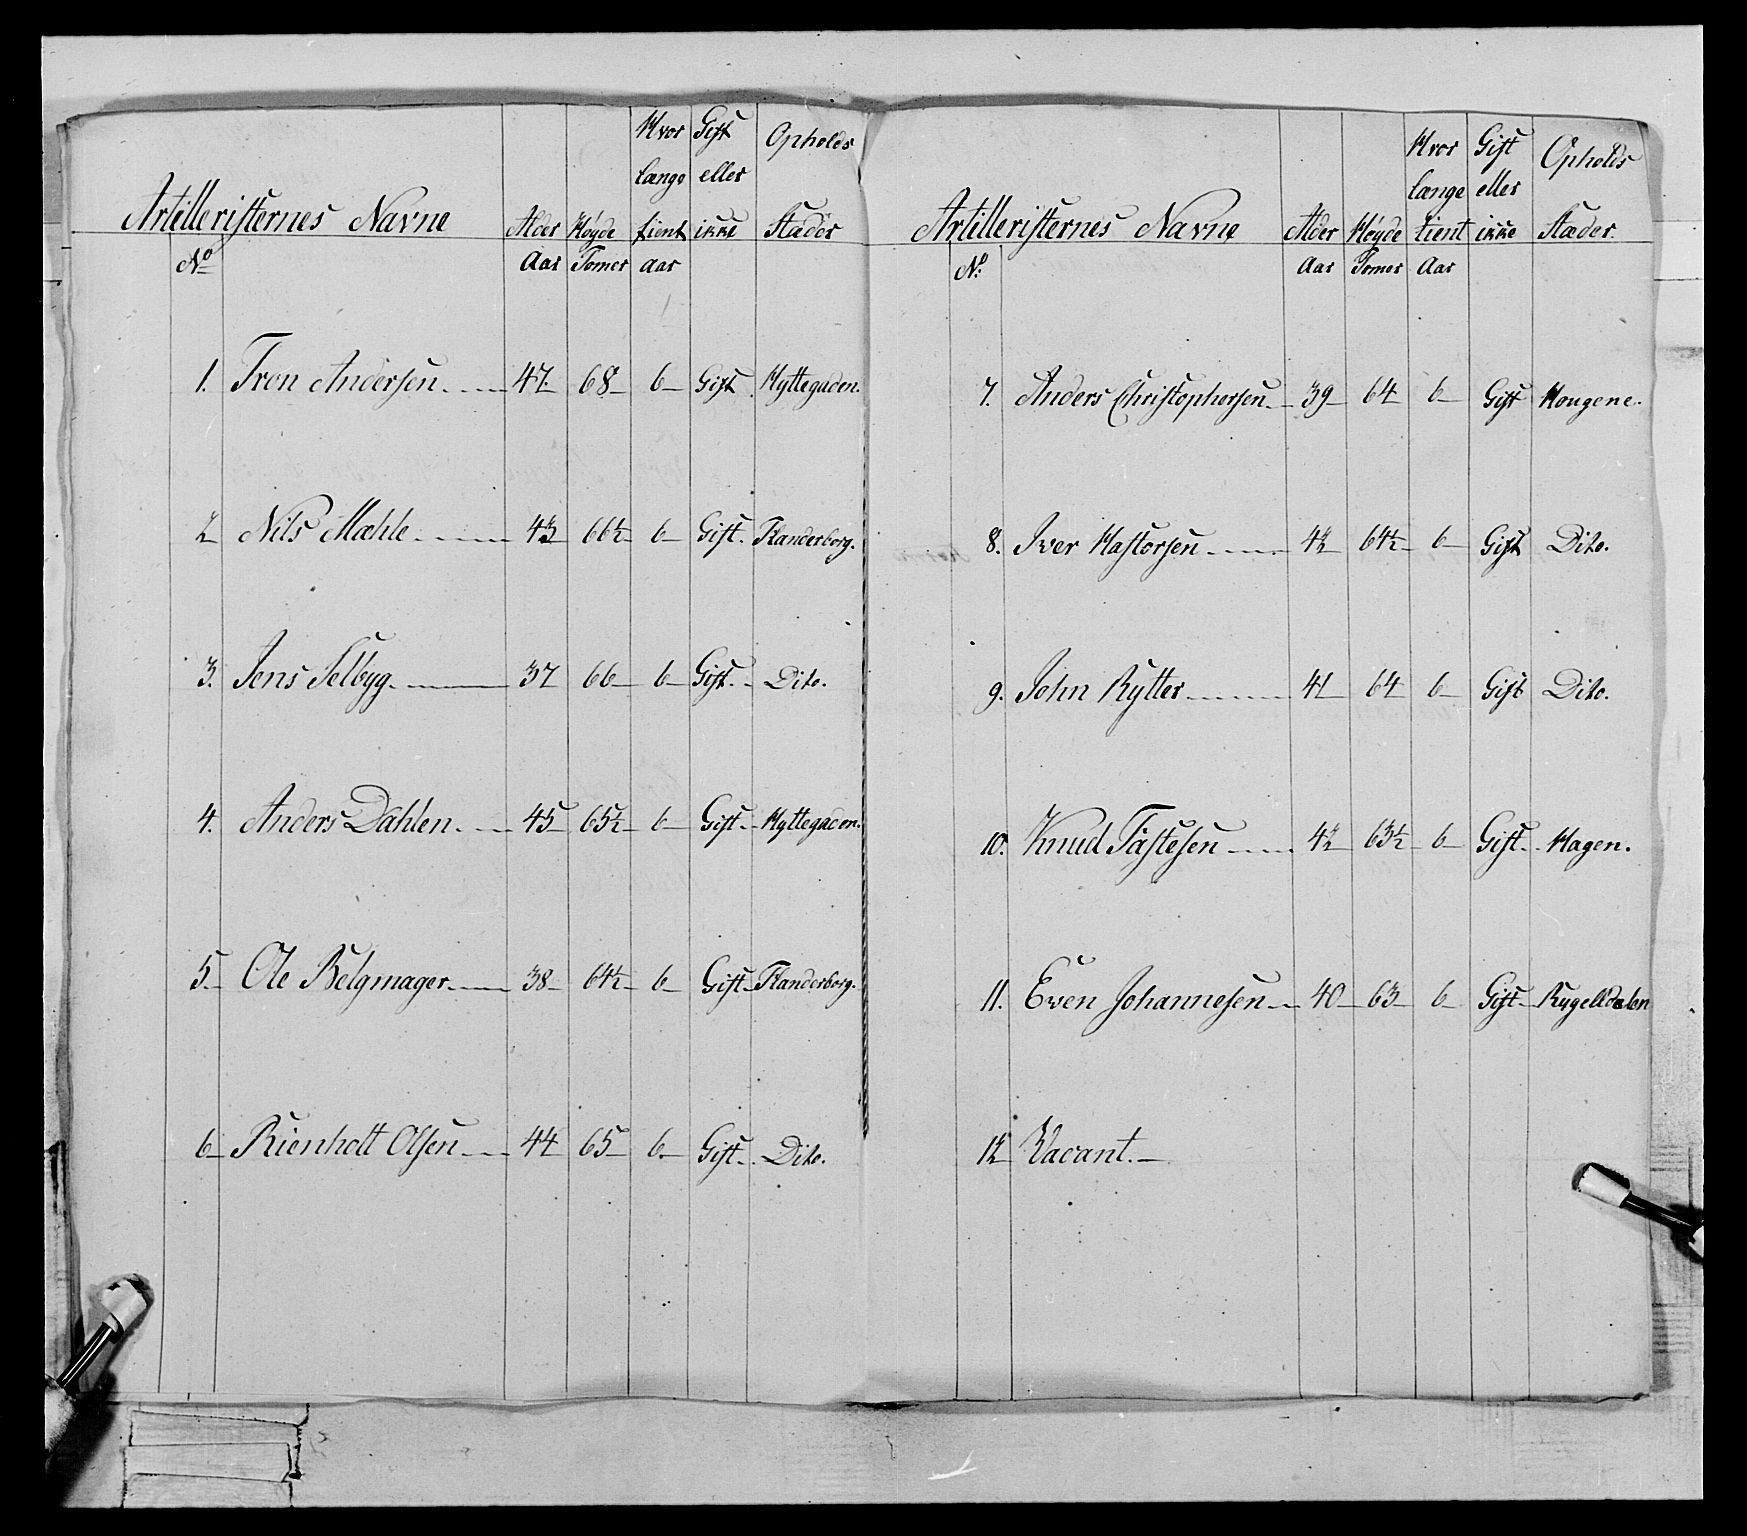 Artilleristernes Navne Alder Høyde Hvor længe tient Gift eller ikke Opholds Stæder
No Aar Tomer aar
1. Tron Andersen 47 68 6 Gift Hyttegaden.
2 Nils Mæhle 43 66½ 6 Gift. Flanderborg.
3. Jens Selbyg 37 66 6 Gift. Dito.
4. Anders Dahlen 45 65½ 6 Gift. Hyttegaden.
5. Ole Belgmager 38 64½ 6 Gift Flanderborg.
6 Rienholt Olsen 44 65 6 Gift. Dito.
Artilleristernes Navne Alder Høyde Hvor længe tient Gift eller ikke Opholds Stæder.
No. Aar Tomer Aar
7. Anders Christophersen 39 64 6 Gift Hougene.
8. Iver Hastorsen 42 64½ 6 Gift Dito.
9. John Rytter 41 64 6 Gift Dito.
10. Knud Tastesen 42 63½ 6 Gift. Hagen.
11. Even Johannesen 40 63 6 Gift Rugelldalen
12 Vacant.